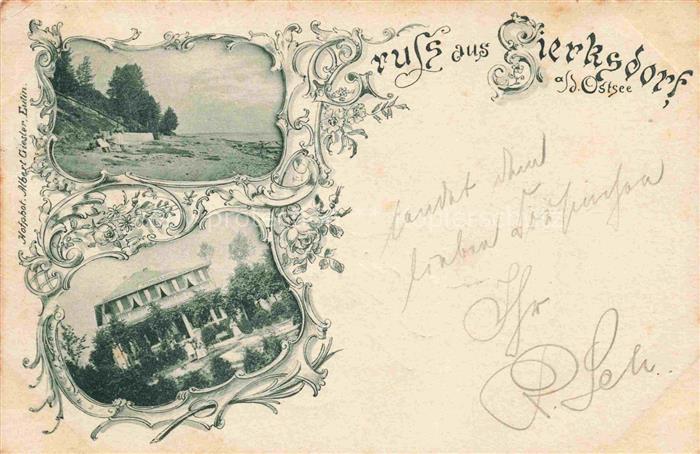 Gruss aus Sierksdorf,
a/d. Ostsee
Hofphot. Albert Giesler. Eutin.
sendet dem
lieben
Ihr
R. Sch.